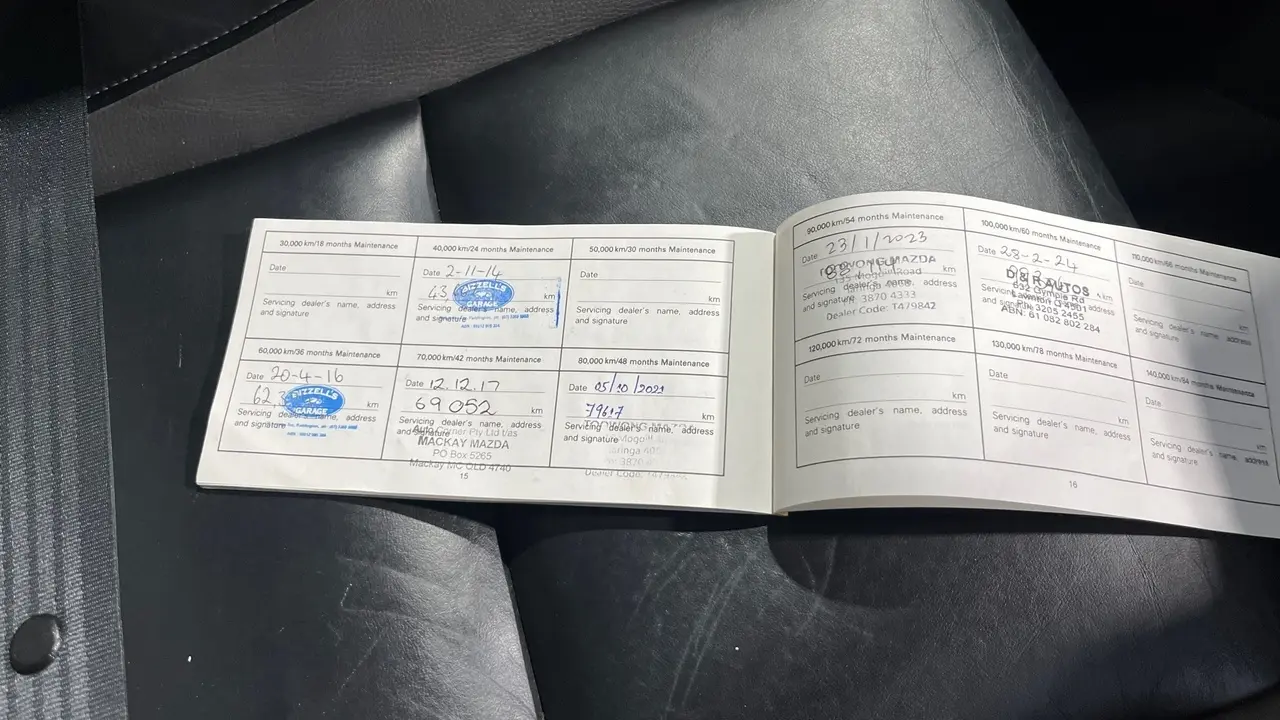 30,000 km/18 months Maintenance
Date
km
Servicing dealer's name, address
and signature
40,000 km/24 months Maintenance
Date 2-11-14
43 km
BIZZELL'S
GARAGE
Servicing dealer's name, address
and signature
50,000 km/30 months Maintenance
Date
km
Servicing dealer's name, address
and signature
60,000 km/36 months Maintenance
Date 20-4-16
62 km
BIZZELL'S
GARAGE
Servicing dealer's name, address
and signature
70,000 km/42 months Maintenance
Date 12.12.17
69 052 km
Servicing dealer's name, address
and signature
Auto Corner Pty Ltd t/as
MACKAY MAZDA
PO Box 5265
Mackay MC QLD 4740
80,000 km/48 months Maintenance
Date 05/10/2021
79617 km
Servicing dealer's name, address
and signature
TOOWONG MAZDA
Dealer Code:
15
90,000 km/54 months Maintenance
Date 23/1/2023
km
TOOWONG MAZDA
Moggill Road
Servicing dealer's name, address
and signature
3870 4333
Dealer Code: T479842
100,000 km/60 months Maintenance
Date 28-2-24
km
D & R AUTOS
Servicing dealer's name, address
and signature
Lawnton Q 4501
Ph: 3205 2455
ABN: 61 082 802 284
110,000 km/66 months Maintenance
Date
km
Servicing dealer's name, address
and signature
120,000 km/72 months Maintenance
Date
km
Servicing dealer's name, address
and signature
130,000 km/78 months Maintenance
Date
km
Servicing dealer's name, address
and signature
140,000 km/84 months Maintenance
Date
km
Servicing dealer's name, address
and signature
16